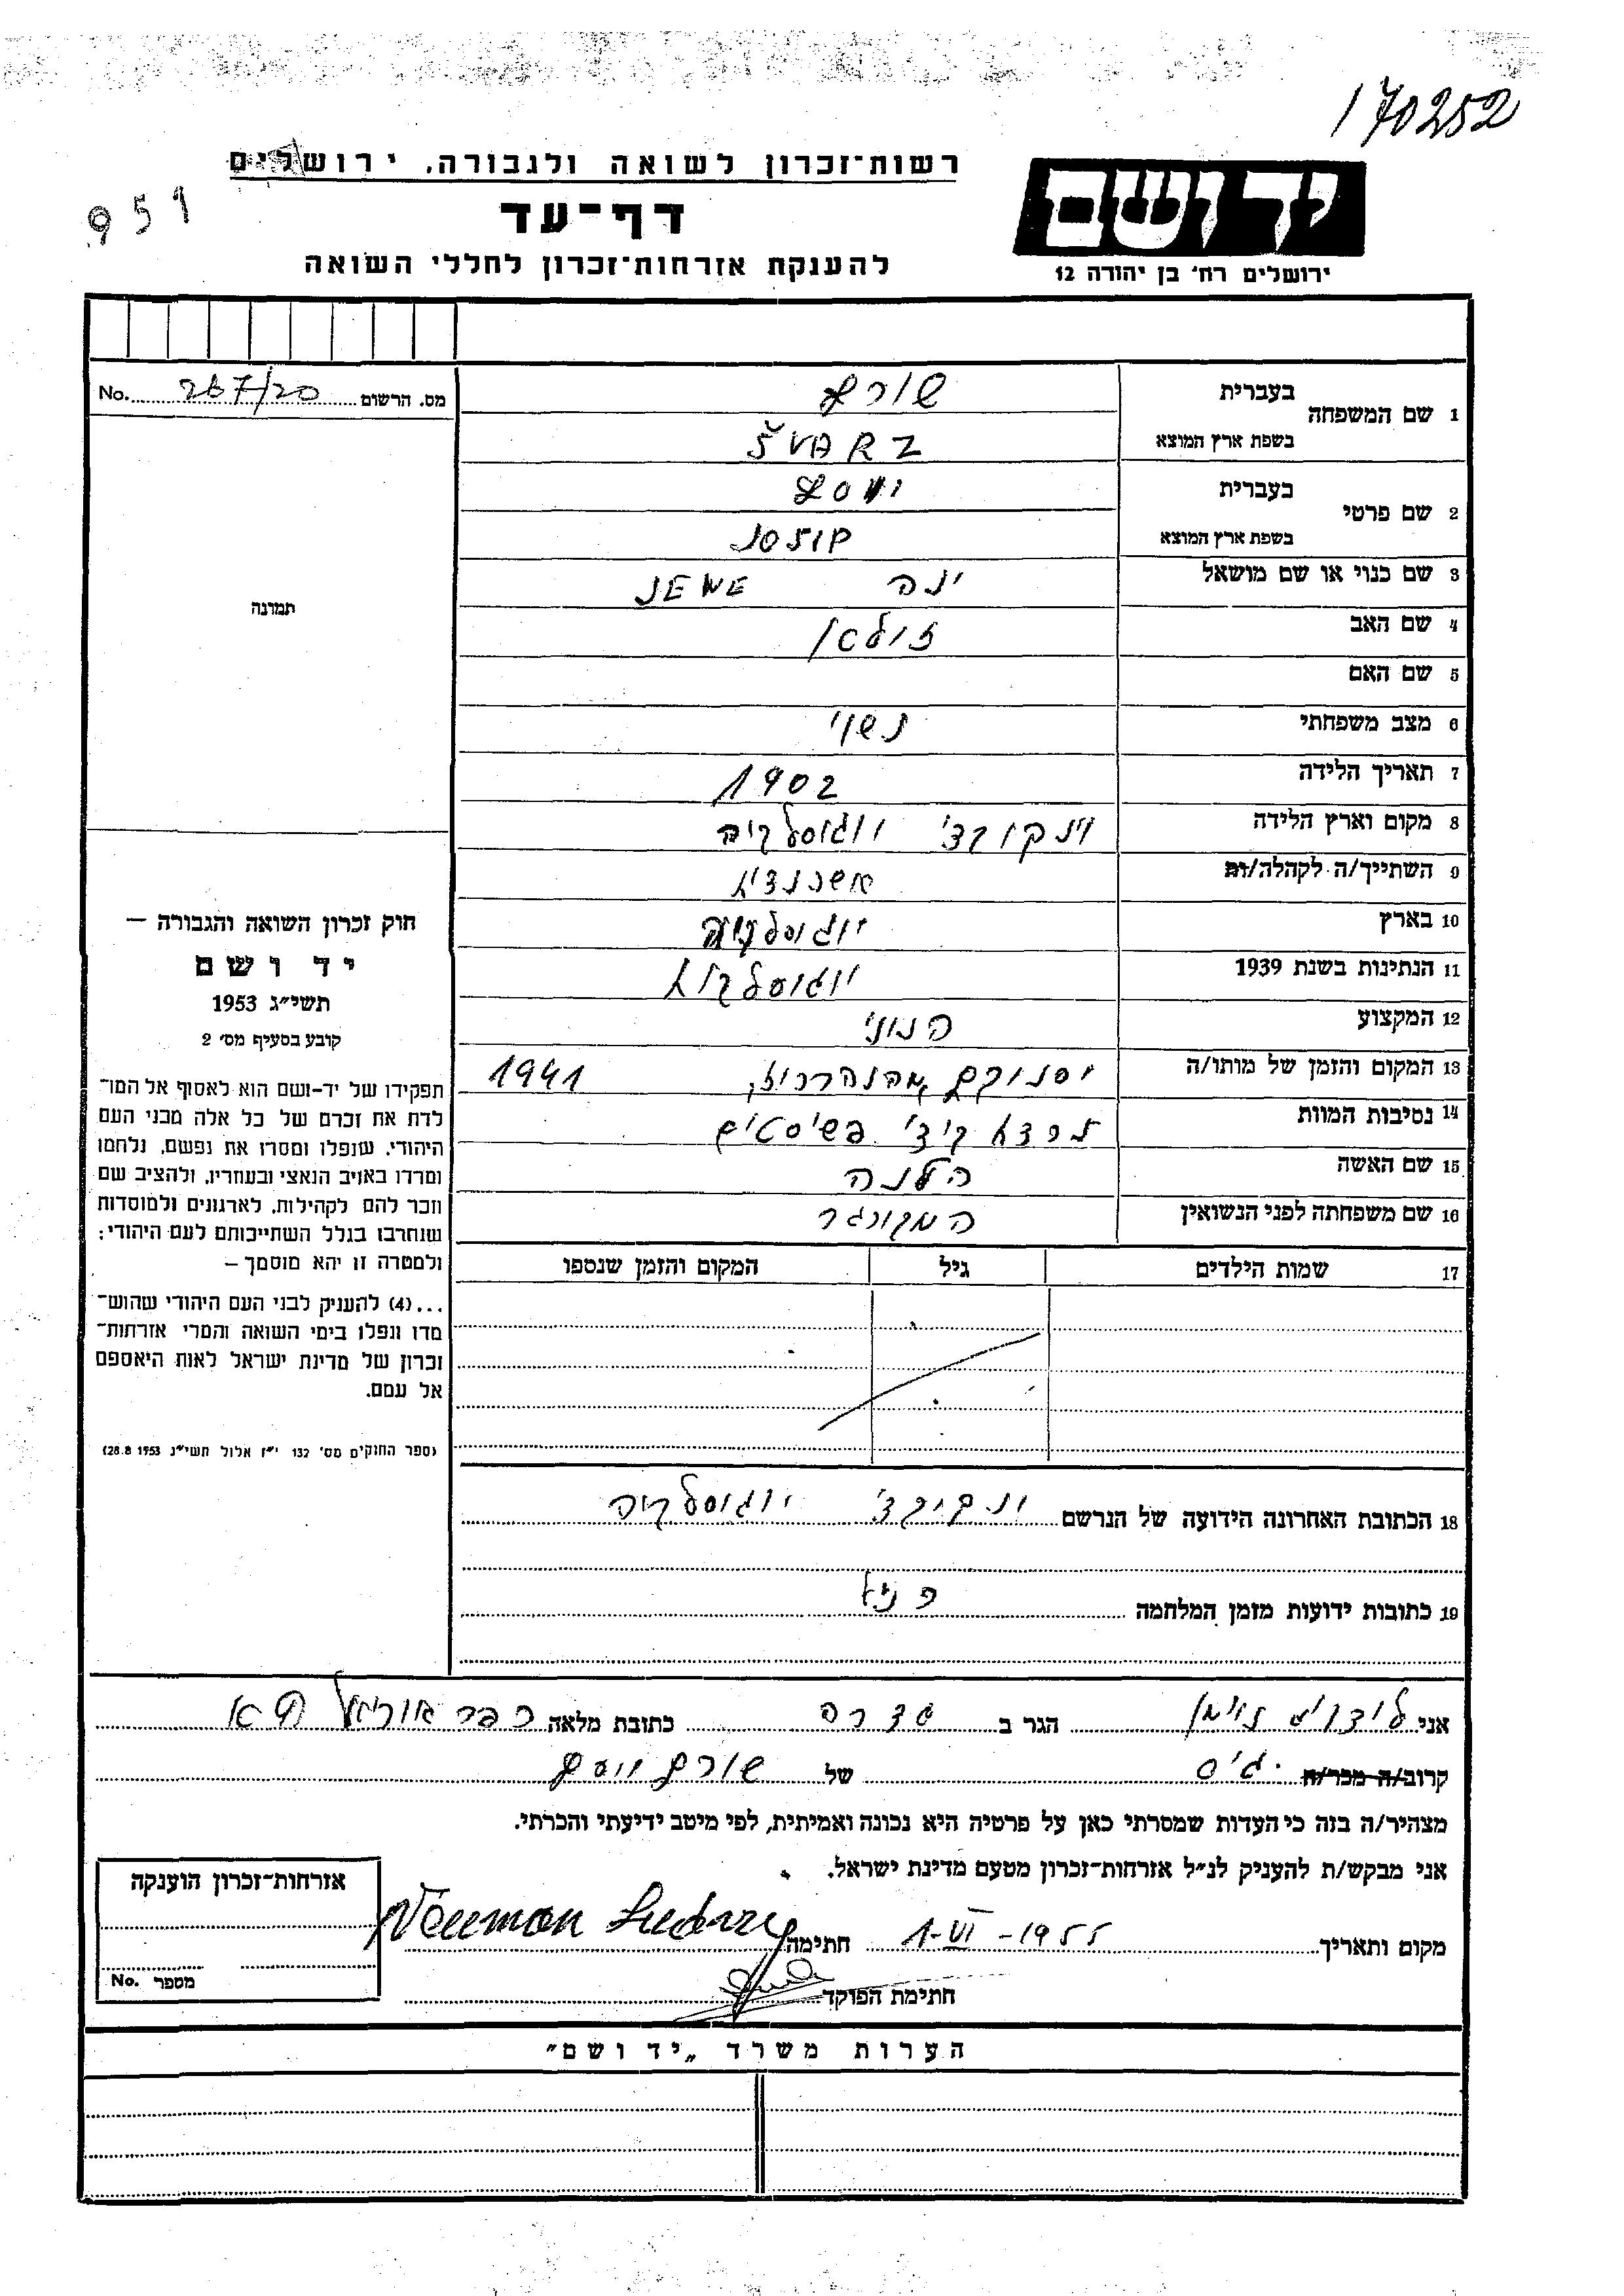 170252
רשות־זכרון לשואה ולגבורה, ירושלים
951
דף־עד
להענקת אזרחות־זכרון לחללי השואה
יד ושם
ירושלים רח' בן יהודה 12
מס. הרשום 267/20 No.
1 שם המשפחה בעברית שורץ
בשפת ארץ המוצא ŠVARZ
2 שם פרטי בעברית
בשפת ארץ המוצא JOSIP
3 שם כנוי או שם מושאל ינה JENE
4 שם האב זולטן
5 שם האם
6 מצב משפחתי נשוי
7 תאריך הלידה 1902
8 מקום וארץ הלידה וינקובצי יוגוסלביה
9 השתייך/ה לקהלה/ות אשכנזית
10 בארץ יוגוסלביה
11 הנתינות בשנת 1939 יוגוסלבית
12 המקצוע חנוני
13 המקום והזמן של מותו/ה יסנובץ 1941
14 נסיבות המוות פשיסטים
15 שם האשה הלנה
16 שם משפחתה לפני הנשואין
17 שמות הילדים גיל המקום והזמן שנספו
תמונה
חוק זכרון השואה והגבורה —
יד ושם
תשי״ג 1953
קובע בסעיף מס' 2
תפקידו של יד־ושם הוא לאסוף אל המו־
לדת את זכרם של כל אלה מבני העם
היהודי, שנפלו ומסרו את נפשם, נלחמו
ומרדו באויב הנאצי ובעוזריו, ולהציב שם
וזכר להם לקהילות, לארגונים ולמוסדות
שנחרבו בגלל השתייכותם לעם היהודי;
ולמטרה זו יהא מוסמך —
...(4) להעניק לבני העם היהודי שהוש־
מדו ונפלו בימי השואה והמרי אזרחות־
זכרון של מדינת ישראל לאות היאספם
אל עמם.
(ספר החוקים מס' 132 י״ז אלול תשי״ג 28.8.1953)
18 הכתובת האחרונה הידועה של הנרשם וינקובצי יוגוסלביה
19 כתובות ידועות מזמן המלחמה כנ״ל
אני לודויג נוימן הגר ב גדרה כתובת מלאה כפר אוריאל
קרוב/ה מכר/ה גיס של שורץ
מצהיר/ה בזה כי העדות שמסרתי כאן על פרטיה היא נכונה ואמיתית, לפי מיטב ידיעתי והכרתי.
אני מבקש/ת להעניק לנ״ל אזרחות־זכרון מטעם מדינת ישראל.
מקום ותאריך 1-VI-1955 חתימה Neuman
חתימת הפוקד
אזרחות־זכרון הוענקה
מספר No.
הערות משרד „יד ושם״